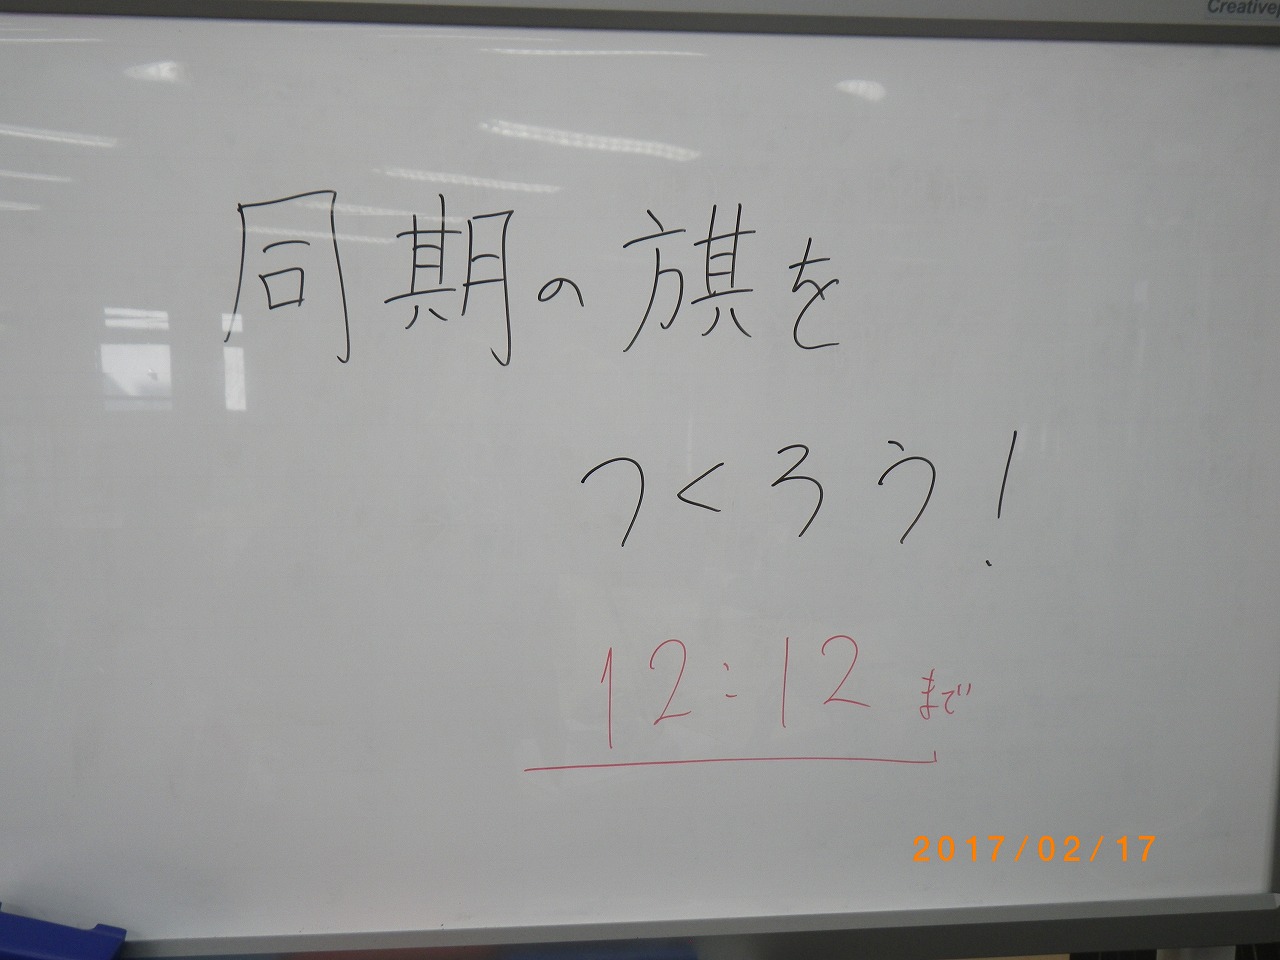 Creativep
同期の旗を
つくろう!
12:12 まで
2017/02/17